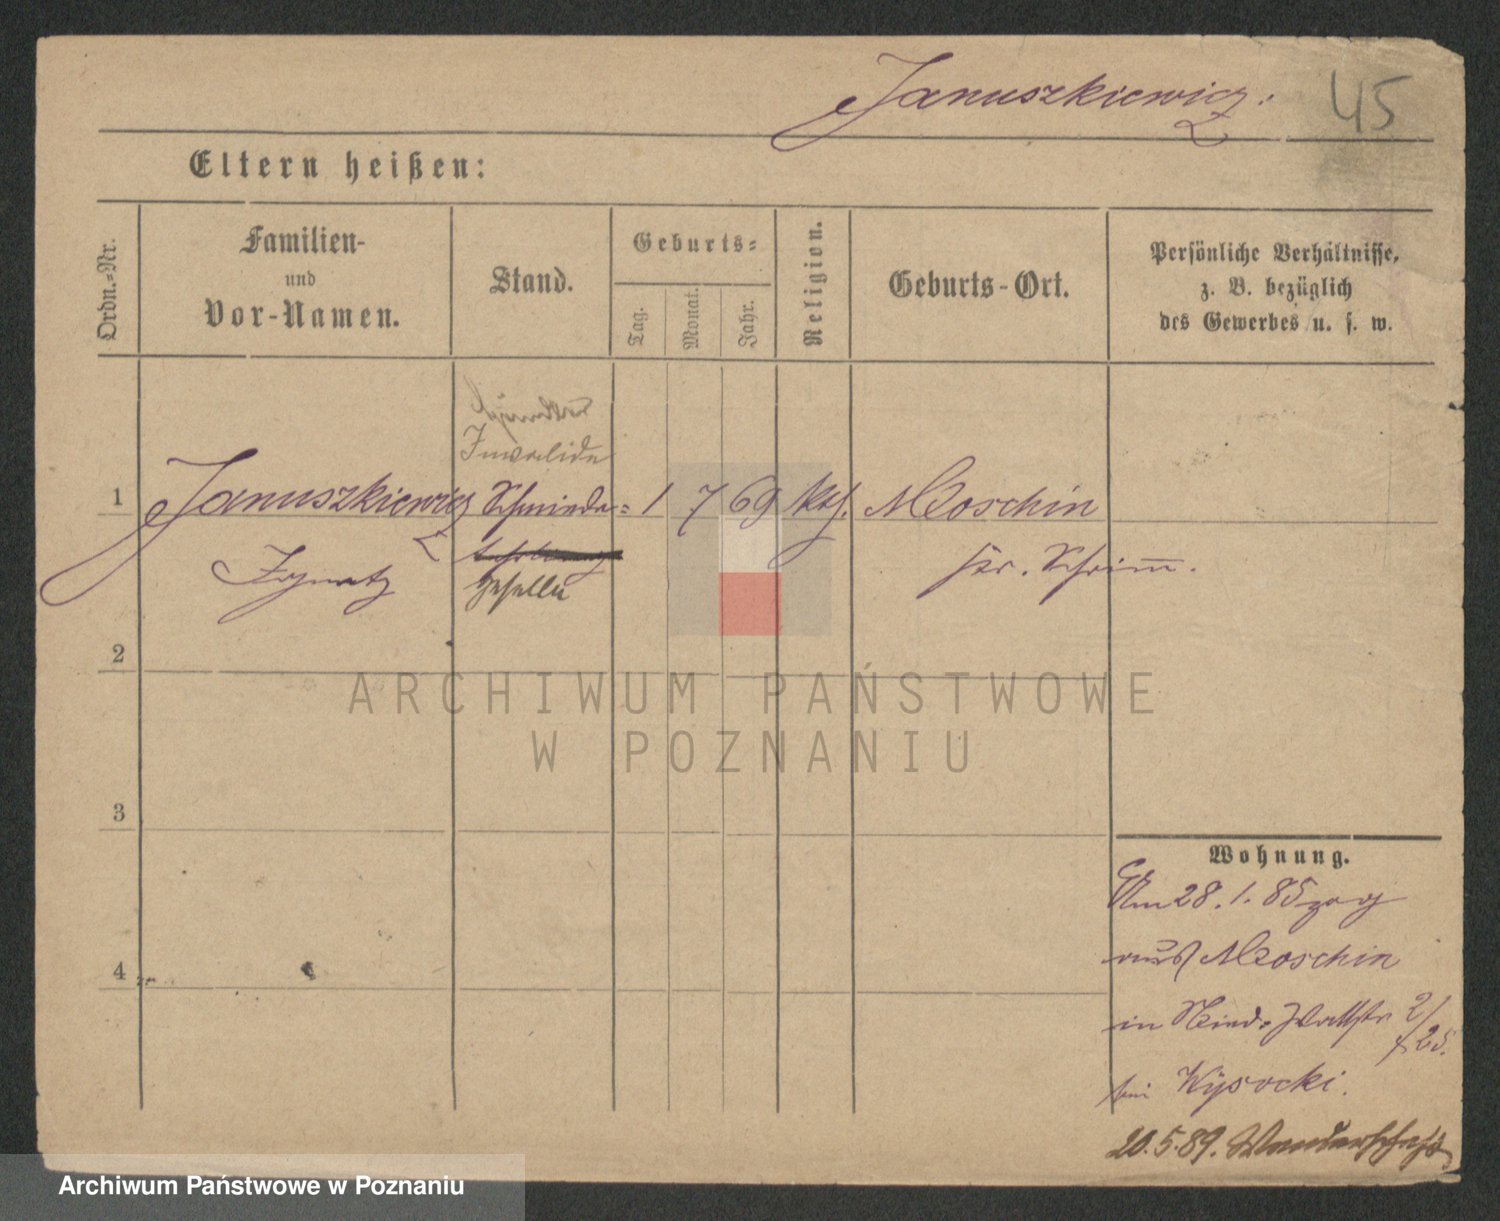 Januszkiewicz.
45
Eltern heißen:
Ordn.-Nr.
Familien-
und
Vor-Namen.
Stand.
Geburts-
Tag.
Monat.
Jahr.
Religion.
Geburts-Ort.
Persönliche Verhältnisse,
z. B. bezüglich
des Gewerbes u. s. w.
Invalide
1 Januszkiewicz Schmiede- 1 7 69 kth. Moschin
Ignatz
Geselle
Kr. Schrimm.
2
ARCHIWUM PAŃSTWOWE
W POZNANIU
3
Wohnung.
Am 28.1.85 zog
aus Moschin
4
in Wallstr 2/25.
bei Wysocki.
20.5.89. Wanderschaft
Archiwum Państwowe w Poznaniu